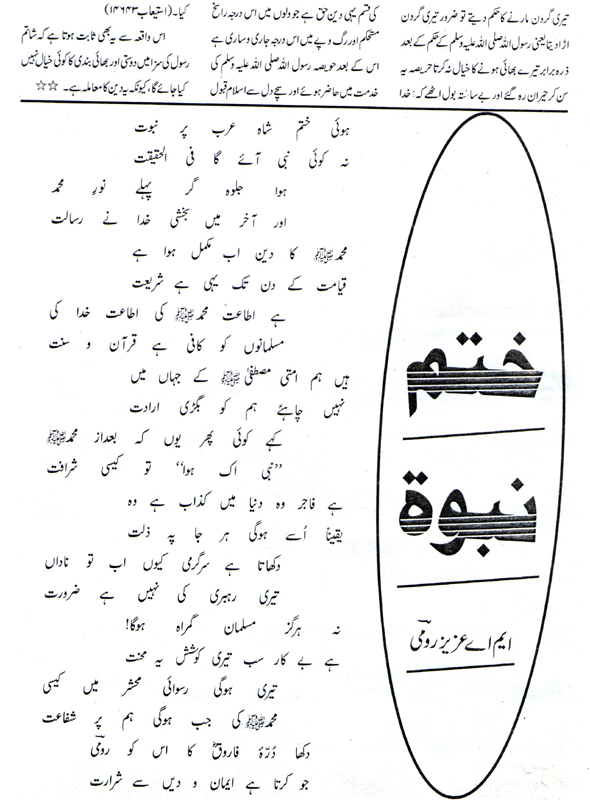 تیری گردن مارنے کا حکم دیتے تو ضرور تیری گردن
اڑا دیتا یعنی رسول اللہ صلی اللہ علیہ وسلم کے حکم کے بعد
ذرہ برابر تیرے بھائی ہونے کا خیال نہ کرتا حویصہ یہ
سن کر حیران رہ گئے اور بے ساختہ بول اٹھے کہ: خدا
کی قسم یہی دین حق ہے جو دلوں میں اس درجہ راسخ
مستحکم اور رگ و پے میں اس درجہ جاری و ساری ہے
اس کے بعد حویصہ رسول اللہ صلی اللہ علیہ وسلم کی
خدمت میں حاضر ہوئے اور سچے دل سے اسلام قبول
کیا۔ (استیعاب ۱۴۶۴۳)
اس واقعہ سے یہ بھی ثابت ہوتا ہے کہ شاتم
رسول کی سزا میں دوستی اور بھائی بندی کا کوئی خیال نہیں
کیا جائے گا، کیونکہ یہ دین کا معاملہ ہے۔ ☆☆
ختم
نبوة
ایم اے عزیز رومیؔ
ہوئی ختم شاہ عرب پر نبوت
نہ کوئی نبی آئے گا فی الحقیقت
ہوا جلوہ گر پہلے نورِ محمد
اور آخر میں بخشی خدا نے رسالت
محمد ﷺ کا دین اب مکمل ہوا ہے
قیامت کے دن تک یہی ہے شریعت
ہے اطاعت محمد ﷺ کی اطاعت خدا کی
مسلمانوں کو کافی ہے قرآن و سنت
ہیں ہم امتی مصطفیٰ ﷺ کے جہاں میں
نہیں چاہئے ہم کو بگڑی ارادت
کہے کوئی پھر یوں کہ بعد از محمد ﷺ
”نبی اک ہوا“ تو کیسی شرافت
ہے فاجر وہ دنیا میں کذاب ہے وہ
یقیناً اُسے ہوگی ہر جا پہ ذلت
دکھاتا ہے سرگرمی کیوں اب تو ناداں
تیری رہبری کی نہیں ہے ضرورت
نہ ہرگز مسلمان گمراہ ہوگا!
ہے بے کار سب تیری کوشش یہ محنت
تیری ہوگی رسوائی محشر میں کیسی
محمد ﷺ کی جب ہوگی ہم پر شفاعت
دکھا دُرّہ فاروقؓ کا اس کو رومیؔ
جو کرتا ہے ایمان و دیں سے شرارت